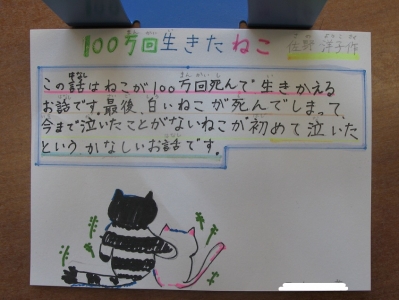 100万回生きたねこ
佐野 洋子作
この話はねこが100万回死んで生きかえる
お話です。最後、白いねこが死んでしまって、
今まで泣いたことがないねこが初めて泣いた
というかなしいお話です。